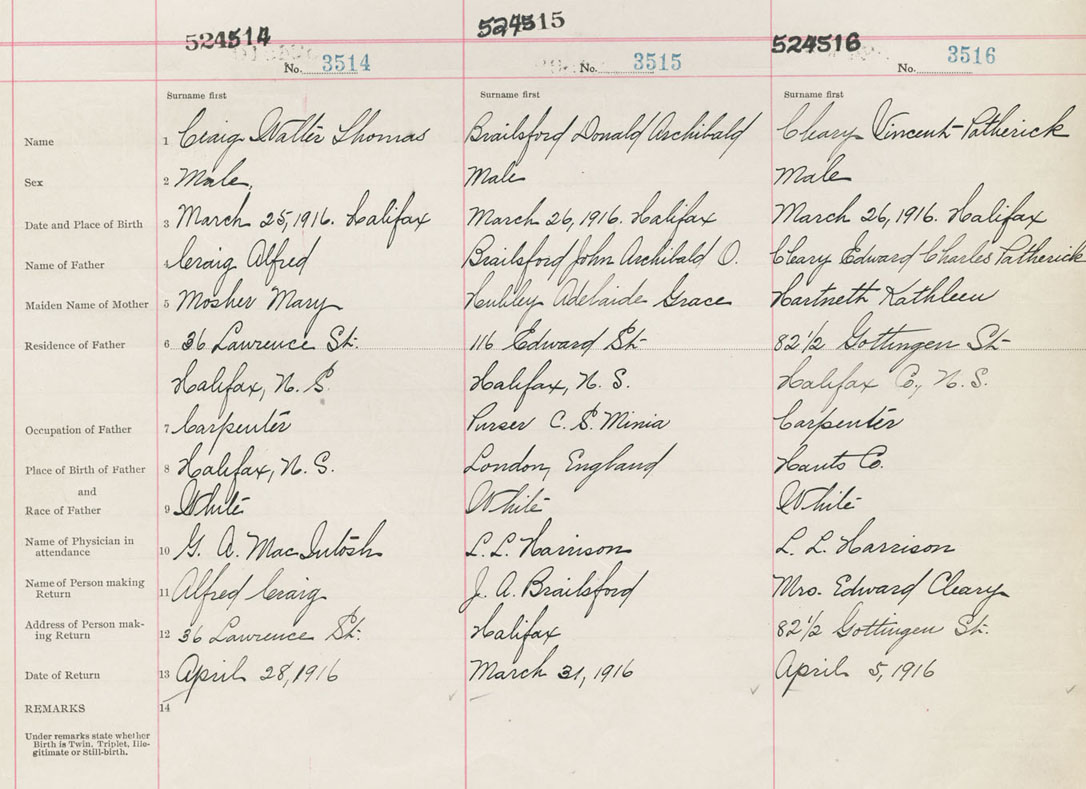 524514 524515 524516
No. 3514 No. 3515 No. 3516
Surname first Surname first Surname first
Name 1 Craig Walter Thomas Brailsford Donald Archibald Cleary Vincent Patherick
Sex 2 Male. Male Male
Date and Place of Birth 3 March 25, 1916. Halifax March 26, 1916. Halifax March 26, 1916. Halifax
Name of Father 4 Craig Alfred Brailsford John Archibald O. Cleary Edward Charles Patherick
Maiden Name of Mother 5 Mosher Mary Hubley Adelaide Grace Hartneth Kathleen
Residence of Father 6 36 Lawrence St. 116 Edward St 82 1/2 Gottingen St
Halifax, N. S. Halifax, N. S. Halifax Co, N. S.
Occupation of Father 7 Carpenter Purser C. S. Minia Carpenter
Place of Birth of Father 8 Halifax, N. S. London, England Hants Co.
and
Race of Father 9 White White White
Name of Physician in
attendance 10 G. A. MacIntosh L. L. Harrison L. L. Harrison
Name of Person making
Return 11 Alfred Craig J. A. Brailsford Mrs. Edward Cleary
Address of Person mak-
ing Return 12 36 Lawrence St. Halifax 82 1/2 Gottingen St.
Date of Return 13 April 28, 1916 March 31, 1916 April 5, 1916
REMARKS 14
Under remarks state whether
Birth is Twin, Triplet, Ille-
gitimate or Still-birth.